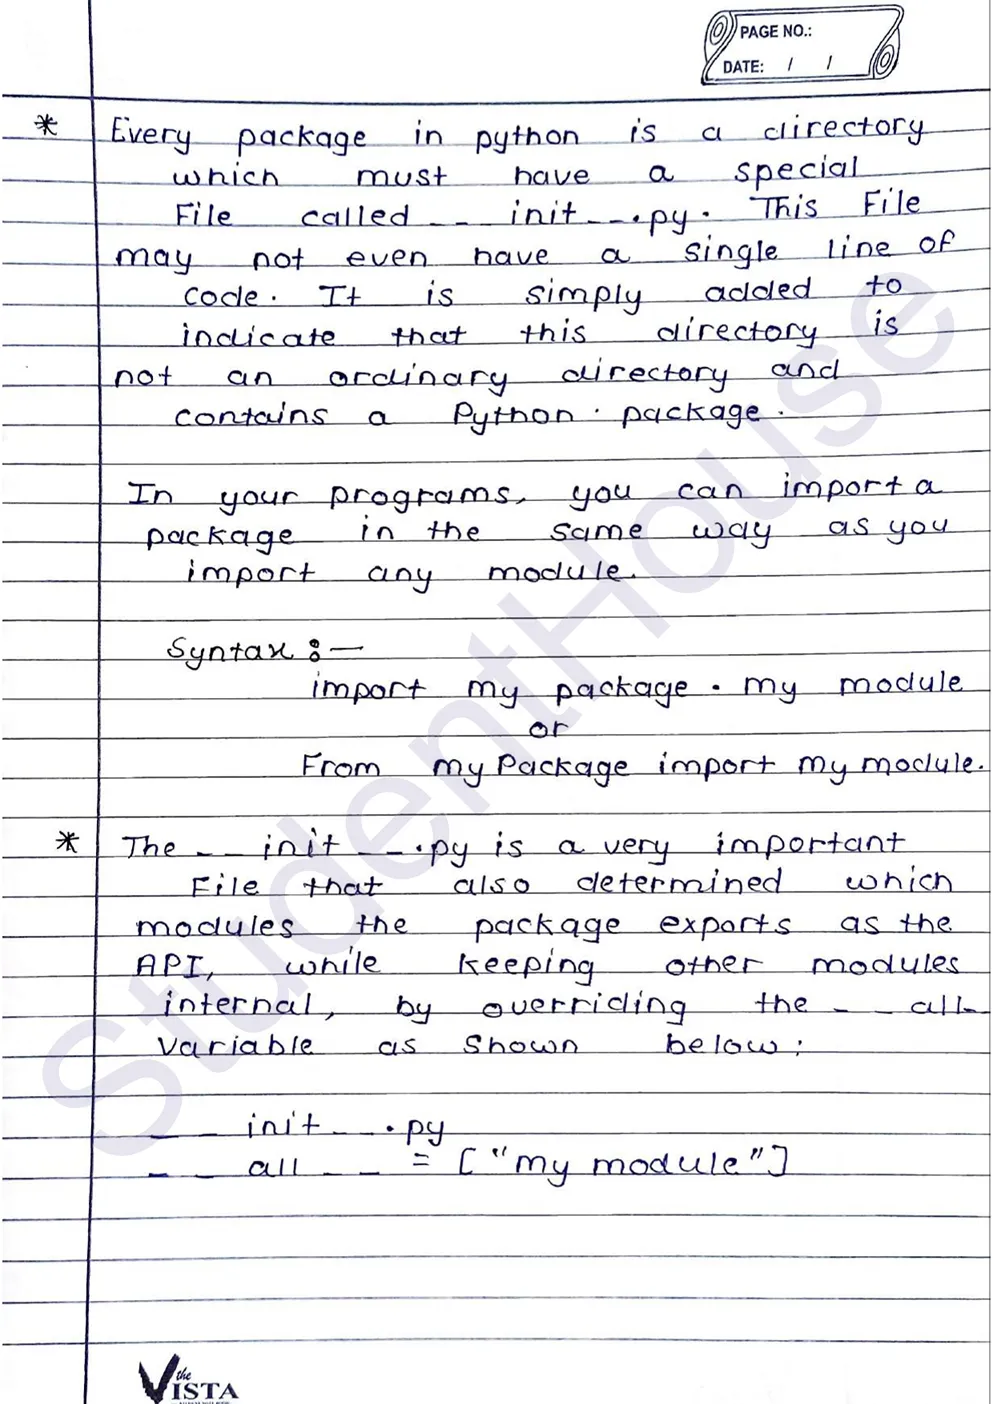 PAGE NO.:
DATE: / /
* Every package in python is a directory
which must have a special
File called __init__.py. This File
may not even have a single line of
code. It is simply added to
indicate that this directory is
not an ordinary directory and
contains a Python package.
In your programs, you can import a
package in the same way as you
import any module.
Syntax :-
import my package . my module
or
From my Package import my module.
* The __init__.py is a very important
File that also determined which
modules the package exports as the
API, while keeping other modules
internal, by overriding the __all_
variable as shown below:
__init__.py
__all__ = ["my module"]
StudentHouse
the
VISTA